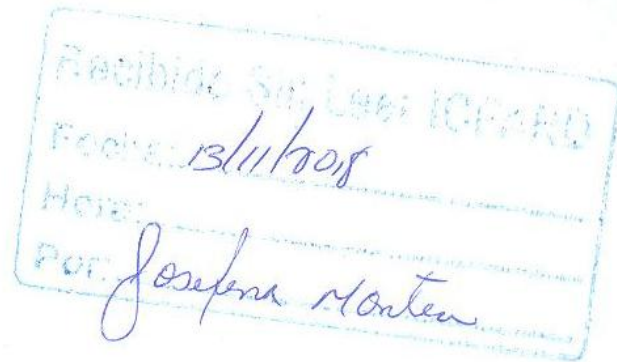 Recibido Sin Leer ICPARD
Fecha: 13/11/2018
Hora:
Por: Josefina Montero